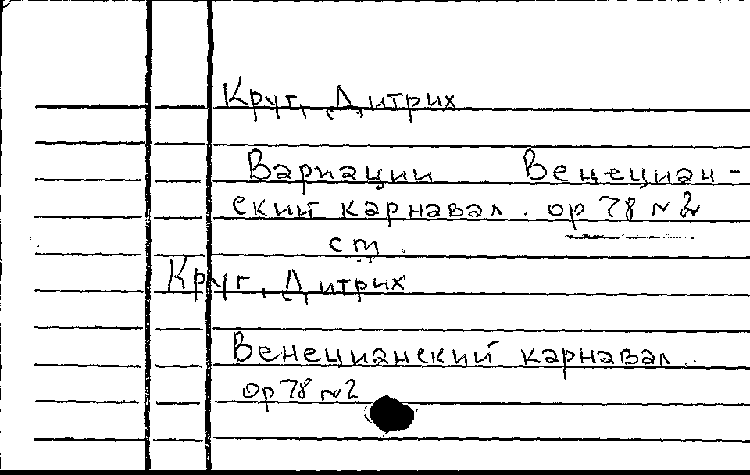 Круг, Дитрих
Вариации Венециан-
ский карнавал. ор 78 № 2
см.
Круг, Дитрих
Венецианский карнавал.
ор 78 № 2